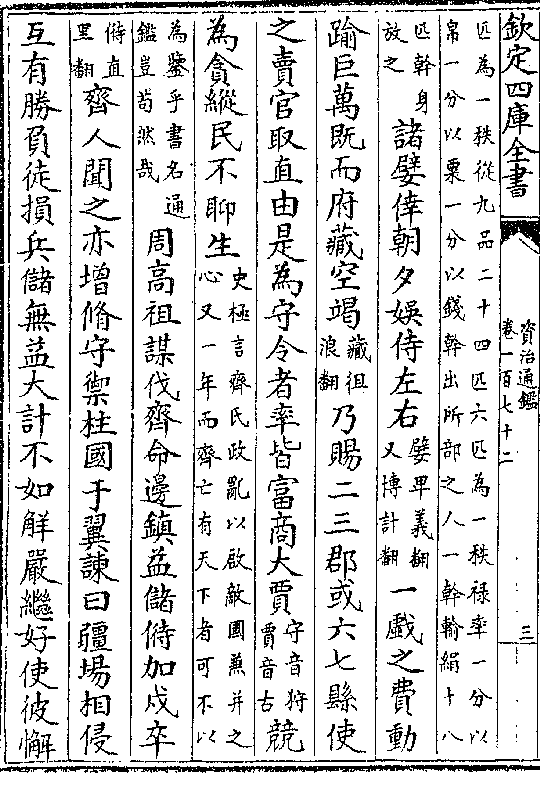 欽定四庫全書
資治通鑑
卷一百七十二
三
匹為一秩從九品二十四匹六匹為一秩禄率一分以
帛一分以粟一分以錢幹出所部之人一幹輸絹十八
匹幹身放之諸嬖倖朝夕娛侍左右嬖卑義翻又博計翻一戲之費動
踰巨萬既而府藏空竭藏徂浪翻乃賜二三郡或六七縣使
之賣官取直由是為守令者率皆富商大賈守音狩賈音古競
為貪縱民不聊生史極言齊民政亂以啟敵國兼并之心又一年而齊亡有天下者可不以
為鑒乎書名通鑑豈苟然哉周高祖謀伐齊命邊鎮益儲偫加戍卒
偫直里翻齊人聞之亦增脩守禦柱國于翼諫曰疆場相侵
互有勝負徒損兵儲無益大計不如解嚴繼好使彼懈